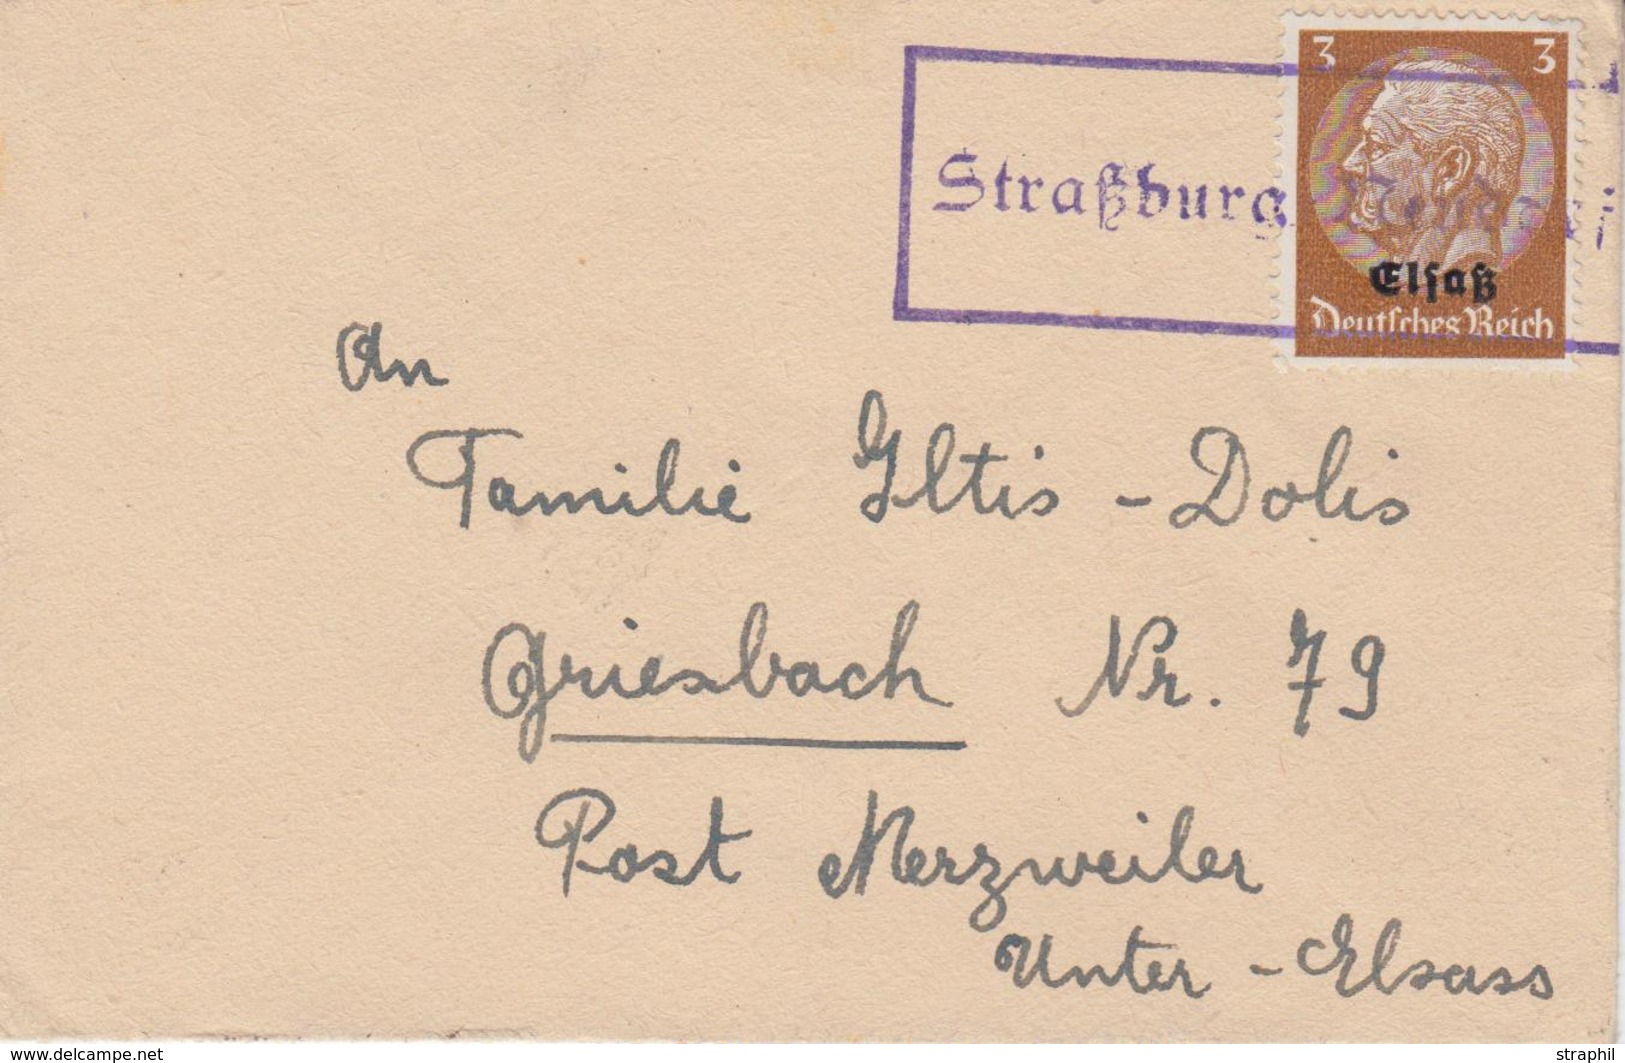 3 3
Straßburg
Elsaß
Deutsches Reich
An
Familie Iltis - Dolis
Griesbach Nr. 79
Post Merzweiler
Unter - Elsass
www.delcampe.net
straphil